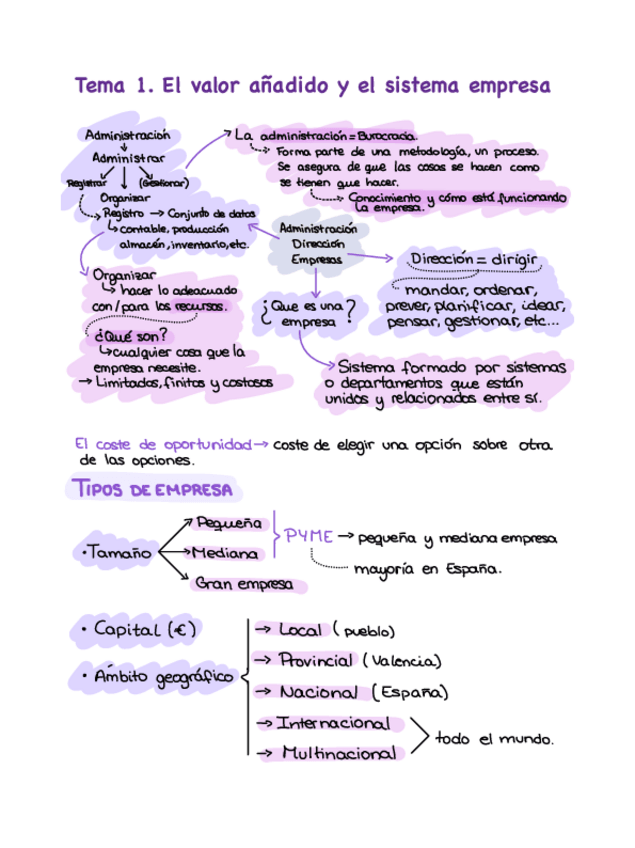 Tema 1. El valor añadido y el sistema empresa
Administración
Administrar
Registrar (Gestionar)
Organizar
Registro → Conjunto de datos
contable, producción
almacén, inventario, etc.
La administración = Burocracia.
Forma parte de una metodología, un proceso.
Se asegura de que las cosas se hacen como
se tienen que hacer.
Conocimiento y cómo está funcionando
la empresa.
Administración
Dirección
Empresas
Dirección = dirigir
mandar, ordenar,
prever, planificar, idear,
pensar, gestionar, etc...
Organizar
hacer lo adeacuado
con/para los recursos.
¿Qué son?
cualquier cosa que la
empresa necesite.
→ Limitados, finitos y costosos
¿Que es una
empresa?
Sistema formado por sistemas
o departamentos que están
unidos y relacionados entre sí.
El coste de oportunidad → coste de elegir una opción sobre otra
de las opciones.
TIPOS DE EMPRESA
• Tamaño
Pequeña
Mediana
Gran empresa
PYME → pequeña y mediana empresa
mayoría en España.
• Capital (€)
• Ámbito geográfico
→ Local (pueblo)
→ Provincial (Valencia)
→ Nacional (España)
→ Internacional
→ Multinacional
todo el mundo.